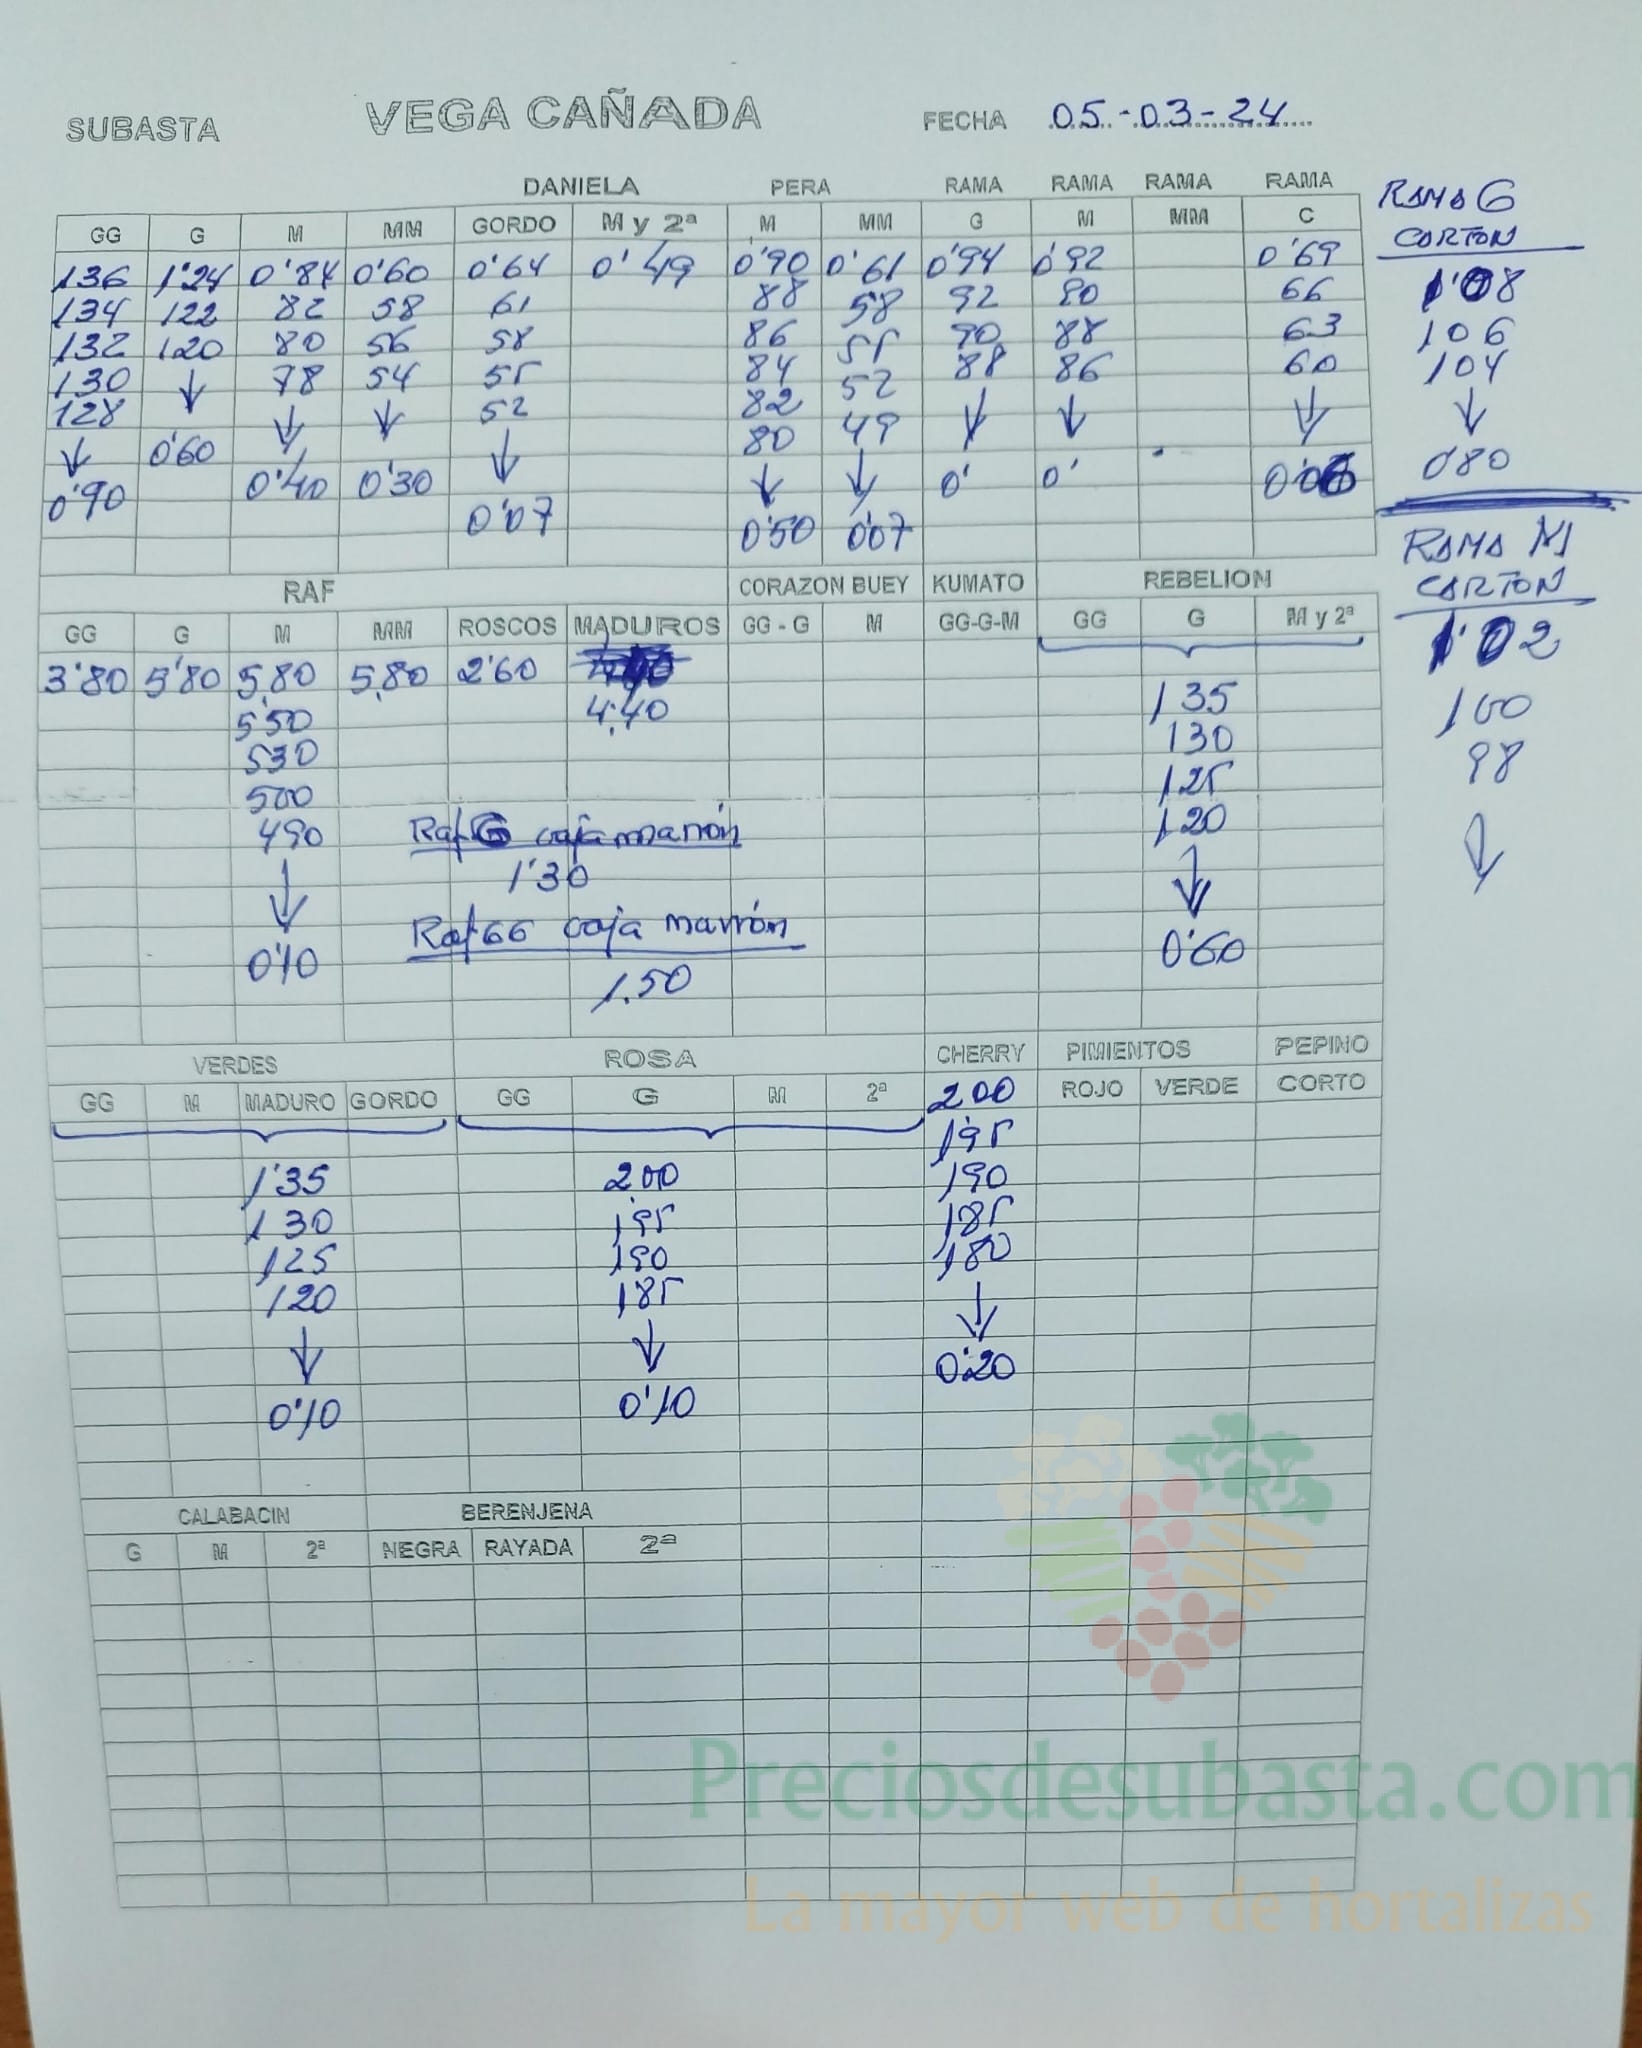 SUBASTA VEGA CAÑADA FECHA 05-03-24
DANIELA PERA RAMA RAMA RAMA RAMA
GG G M MM GORDO M y 2ª M MM G M MM C
136 1'24 0'84 0'60 0'64 0'49 0'90 0'61 0'94 0'92 0'69
134 122 82 58 61 88 58 92 90 66
132 120 80 56 58 86 55 90 88 63
130 ↓ 78 54 55 84 52 88 86 60
128 ↓ ↓ 52 82 49 ↓ ↓ ↓
↓ 0'60 ↓ 80
0'90 0'40 0'30 ↓ ↓ 0' 0'
0'07 0'50 0'07
RAMA G
CARTON
1'08
106
104
↓
0'80
RAMA M
CARTON
1'02
100
98
↓
RAF CORAZON BUEY KUMATO REBELION
GG G M MM ROSCOS MADUROS GG - G M GG-G-M GG G M y 2ª
3'80 5'80 5,80 5,80 2'60
5'50 4,40 135
530 130
500 125
490 120
↓ ↓
0'10 0'60
Raf G caja marrón
1'30
Raf GG caja marrón
1.50
VERDES ROSA CHERRY PIMIENTOS PEPINO
GG M MADURO GORDO GG G M 2ª 200 ROJO VERDE CORTO
195
1'35 200 190
130 195 185
125 190 180
120 185 ↓
↓ ↓ 0'20
0'10 0'10
CALABACIN BERENJENA
G M 2ª NEGRA RAYADA 2ª
Preciosdesubasta.com
La mayor web de hortalizas